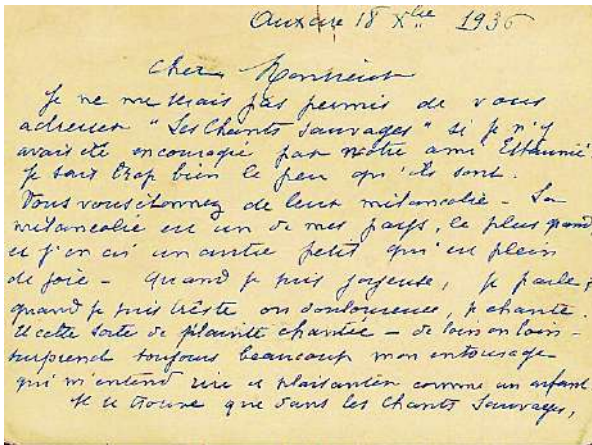 Auxerre 18 Xbre 1936
Cher Monsieur
Je ne me serais pas permis de vous
adresser "Les Chants sauvages" si je n'y
avais été encouragée par notre ami Estaunié.
Je sais trop bien le peu qu'ils sont.
Vous vous étonnez de leur mélancolie - La
mélancolie est un de mes pays, le plus grand,
et j'en ai un autre petit qui est plein
de joie - Quand je suis joyeuse, je parle ;
quand je suis triste ou douloureuse, je chante.
Et cette sorte de plainte chantée - de loin en loin -
surprend toujours beaucoup mon entourage
qui m'entend rire et plaisanter comme un enfant
Il se trouve que dans les Chants Sauvages,